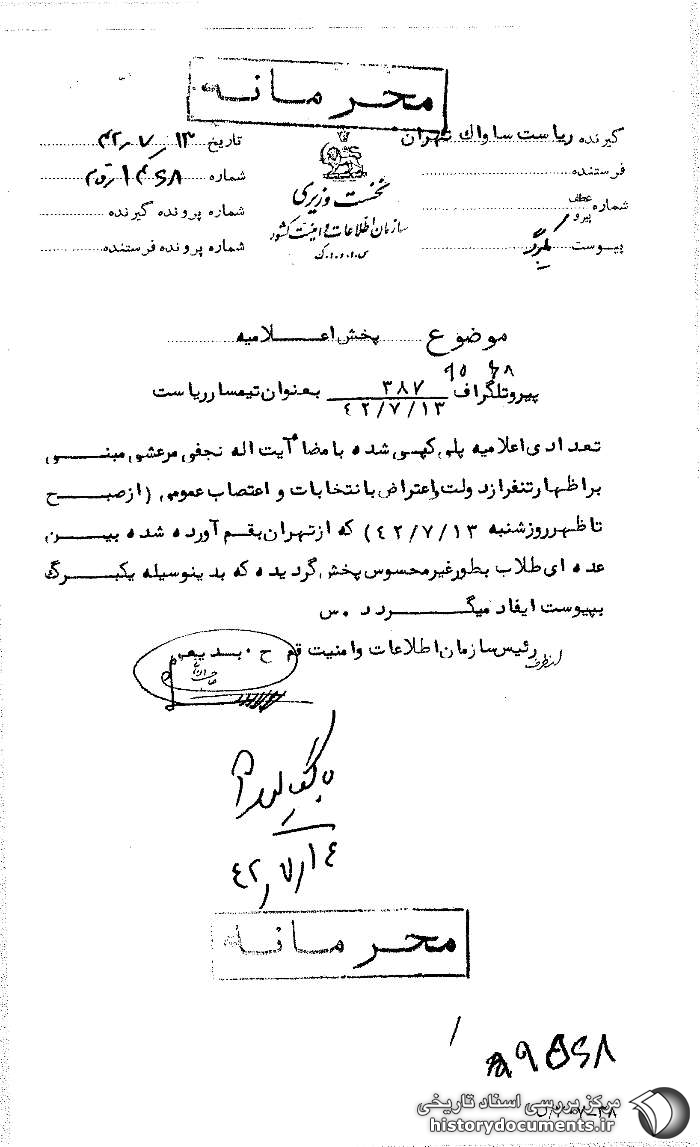 محرمانه
گیرنده ریاست ساواک تهران
فرستنده
شماره عطف پیرو
پیوست یکبرگ
نخست وزیری
سازمان اطلاعات و امنیت کشور
س.ا.و.ا.ک
تاریخ ۴۲٫۷٫۱۳
شماره
شماره پرونده گیرنده
شماره پرونده فرستنده
موضوع پخش اعلامیه
پیرو تلگراف ۳۸۷ بعنوان تیمسار ریاست
۴۲/۷/۱۳
تعدادی اعلامیه پلی کپی شده بامضاء آیت اله نجفی مرعشی مبنی
بر اظهار تنفر از دولت و اعتراض بانتخابات و اعتصاب عمومی (از صبح
تا ظهر روز شنبه ۴۲/۷/۱۳) که از تهران بقم آورده شده بین
عده ای طلاب بطور غیر محسوس پخش گردیده که بدینوسیله یکبرگ
بپیوست ایفاد میگردد. س
رئیس سازمان اطلاعات و امنیت قم ح. بدیعی
۴۲٫۷٫۱۴
محرمانه
مرکز بررسی اسناد تاریخی
historydocuments.ir